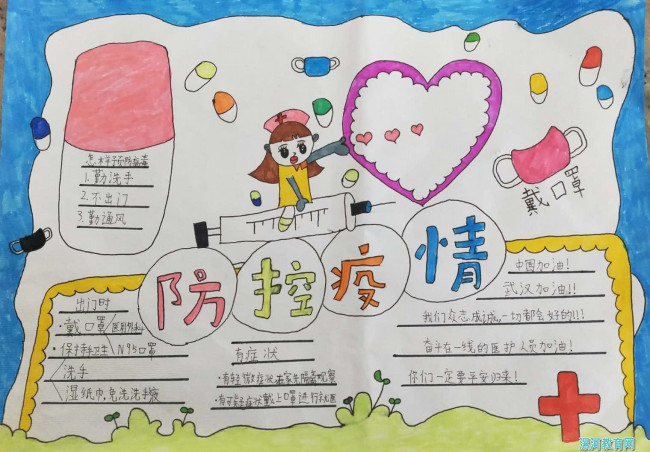 怎样预防病毒
1.勤洗手
2.不出门
3.勤通风
戴口罩
防控疫情
出门时
·戴口罩 医用外科
·保持手卫生 N95口罩
洗手
湿纸巾,免洗洗手液
有症状
·有轻微症状 在家先隔离观察
中国加油!!
武汉加油!!
我们众志成诚,一切都会好的!!
奋斗在一线的医护人员加油!
你们一定要平安归来!
漯河教育网